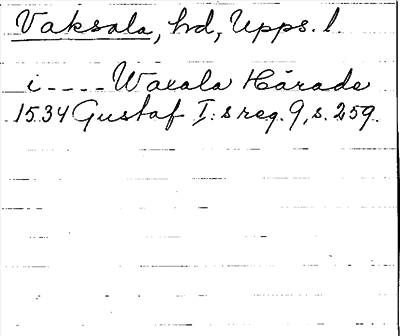 Vaksala, hd, Upps. l.
i - - - - Waxala Härade
1534 Gustaf I:s reg. 9, s. 259.